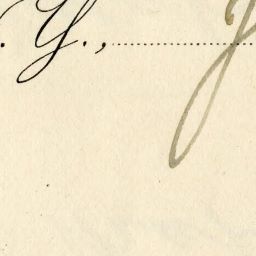 . Y.,